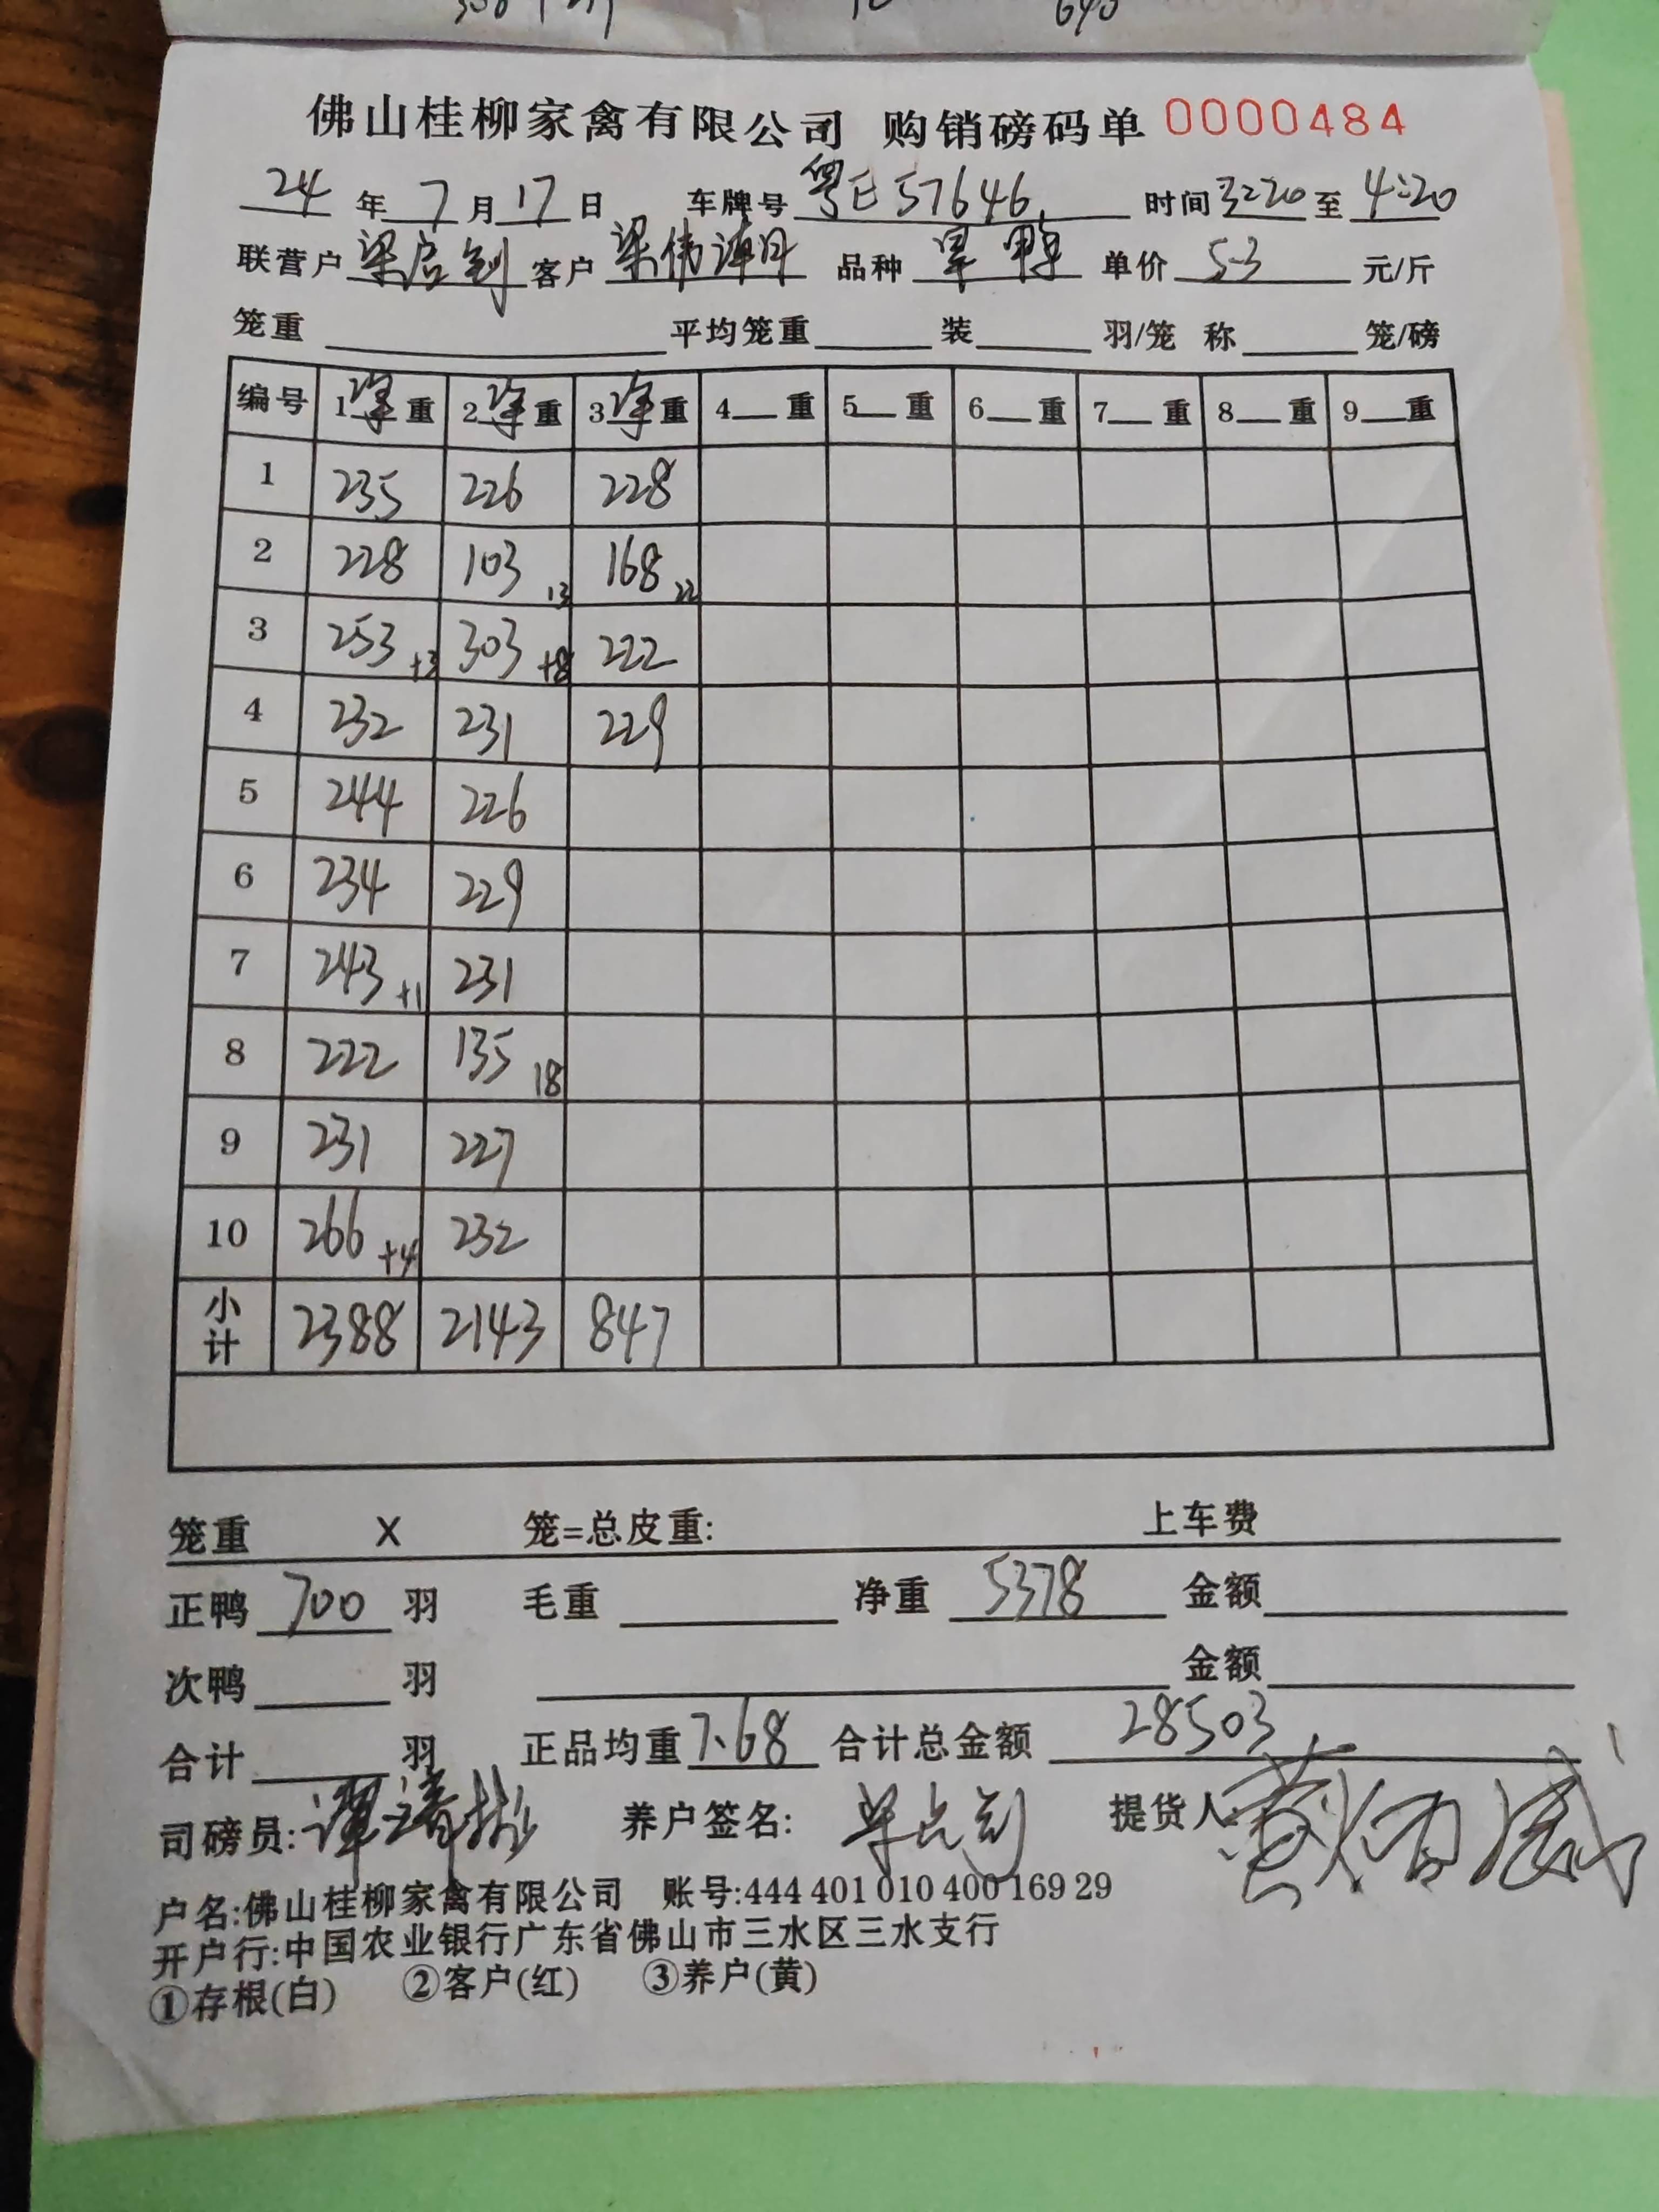 佛山桂柳家禽有限公司 购销磅码单 0000484
24年7月17日 车牌号 粤E57646 时间3:20至4:20
联营户 梁启钊 客户 梁伟 品种 鸭 单价 5.3 元/斤
笼重 平均笼重 装 羽/笼 称 笼/磅
编号 1净重 2净重 3净重 4 重 5 重 6 重 7 重 8 重 9 重
1 235 226 228
2 228 103 13 168 22
3 253 +3 303 +8 222
4 232 231 229
5 244 226
6 234 229
7 243 +1 231
8 222 135 18
9 231 227
10 266 +4 232
小计 2388 2143 847
笼重 X 笼=总皮重: 上车费
正鸭 700 羽 毛重 净重 5378 金额
次鸭 羽 金额
合计 羽 正品均重 7.68 合计总金额 28503
司磅员: 养户签名: 提货人
户名:佛山桂柳家禽有限公司 账号:444 401 010 400 169 29
开户行:中国农业银行广东省佛山市三水区三水支行
①存根(白) ②客户(红) ③养户(黄)